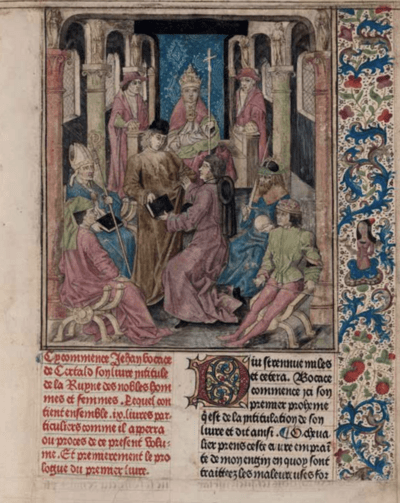 Cy commence Jehan bocace
de Certald son liure intitule
de la Ruyne des nobles hom
mes et femmes. Lequel con
tient ensemble .ix. liures par
ticuliers comme il apperra
ou proces de ce present volu
me. Et premierement le pro
logue du premier liure.
Diu strennue miles
et cetera. Bocace
commence icy son
premier prohyme
qest de la intitulation de son
liure et dit ainsi. O cheua
lier prens ceste
te de mon engyn en quoy sont
traittiez les for